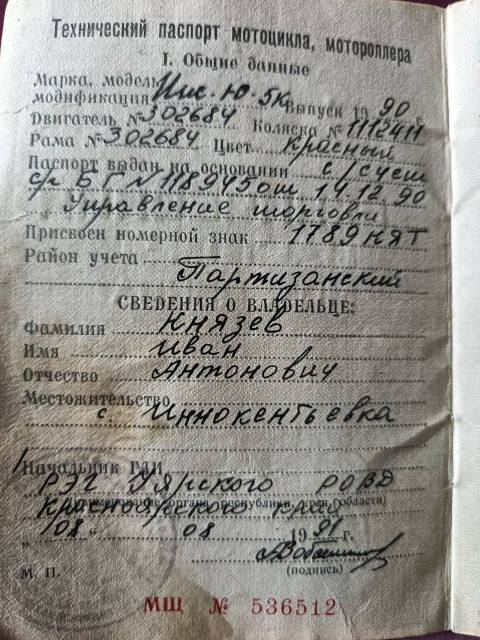 Технический паспорт мотоцикла, мотороллера
I. Общие данные
Марка, модель
модификация Иж. Ю. 5К Выпуск 1990 г.
Двигатель № 302684 Коляска № 1112411
Рама № 302684 Цвет красный
Паспорт выдан на основании с/счет
БГ № 118945 от 14.12.90
Управление торговли
Присвоен номерной знак 1789 КЯТ
Район учета
Партизанский
СВЕДЕНИЯ О ВЛАДЕЛЬЦЕ:
Фамилия Князев
Имя Иван
Отчество Антонович
Местожительство
с. Иннокентьевка
Начальник ГАИ
РЭГ Уярского РОВД
Красноярского края
"08" 08 1991 г.
М. П. (подпись)
МЩ № 536512